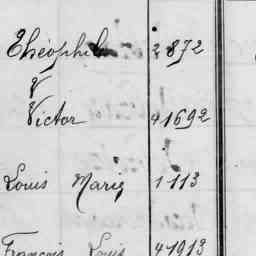 Théophile 2 872
V
Victor 41692
Louis Marie 1 113
François Louis 41913